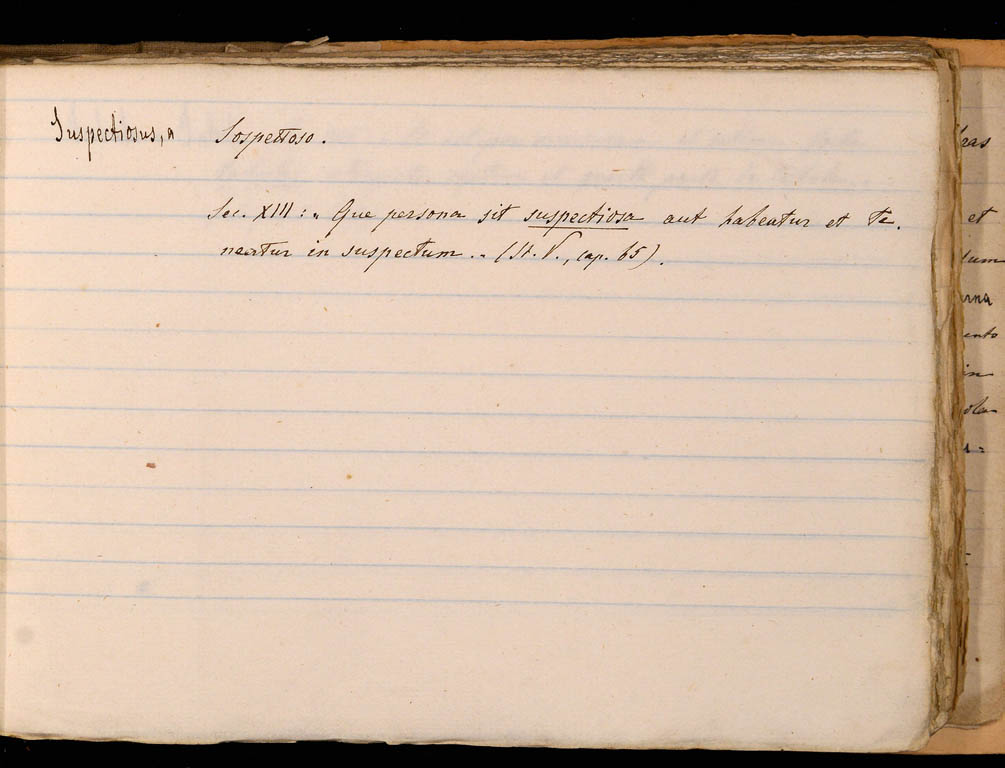 Suspectiosus, a Sospettoso.
Sec. XIII: „ Que persona sit suspectiosa aut habeatur et te.
neatur in suspectum „ (St. V., cap. 65).
ras
et
tum
rna
ento
in
ola